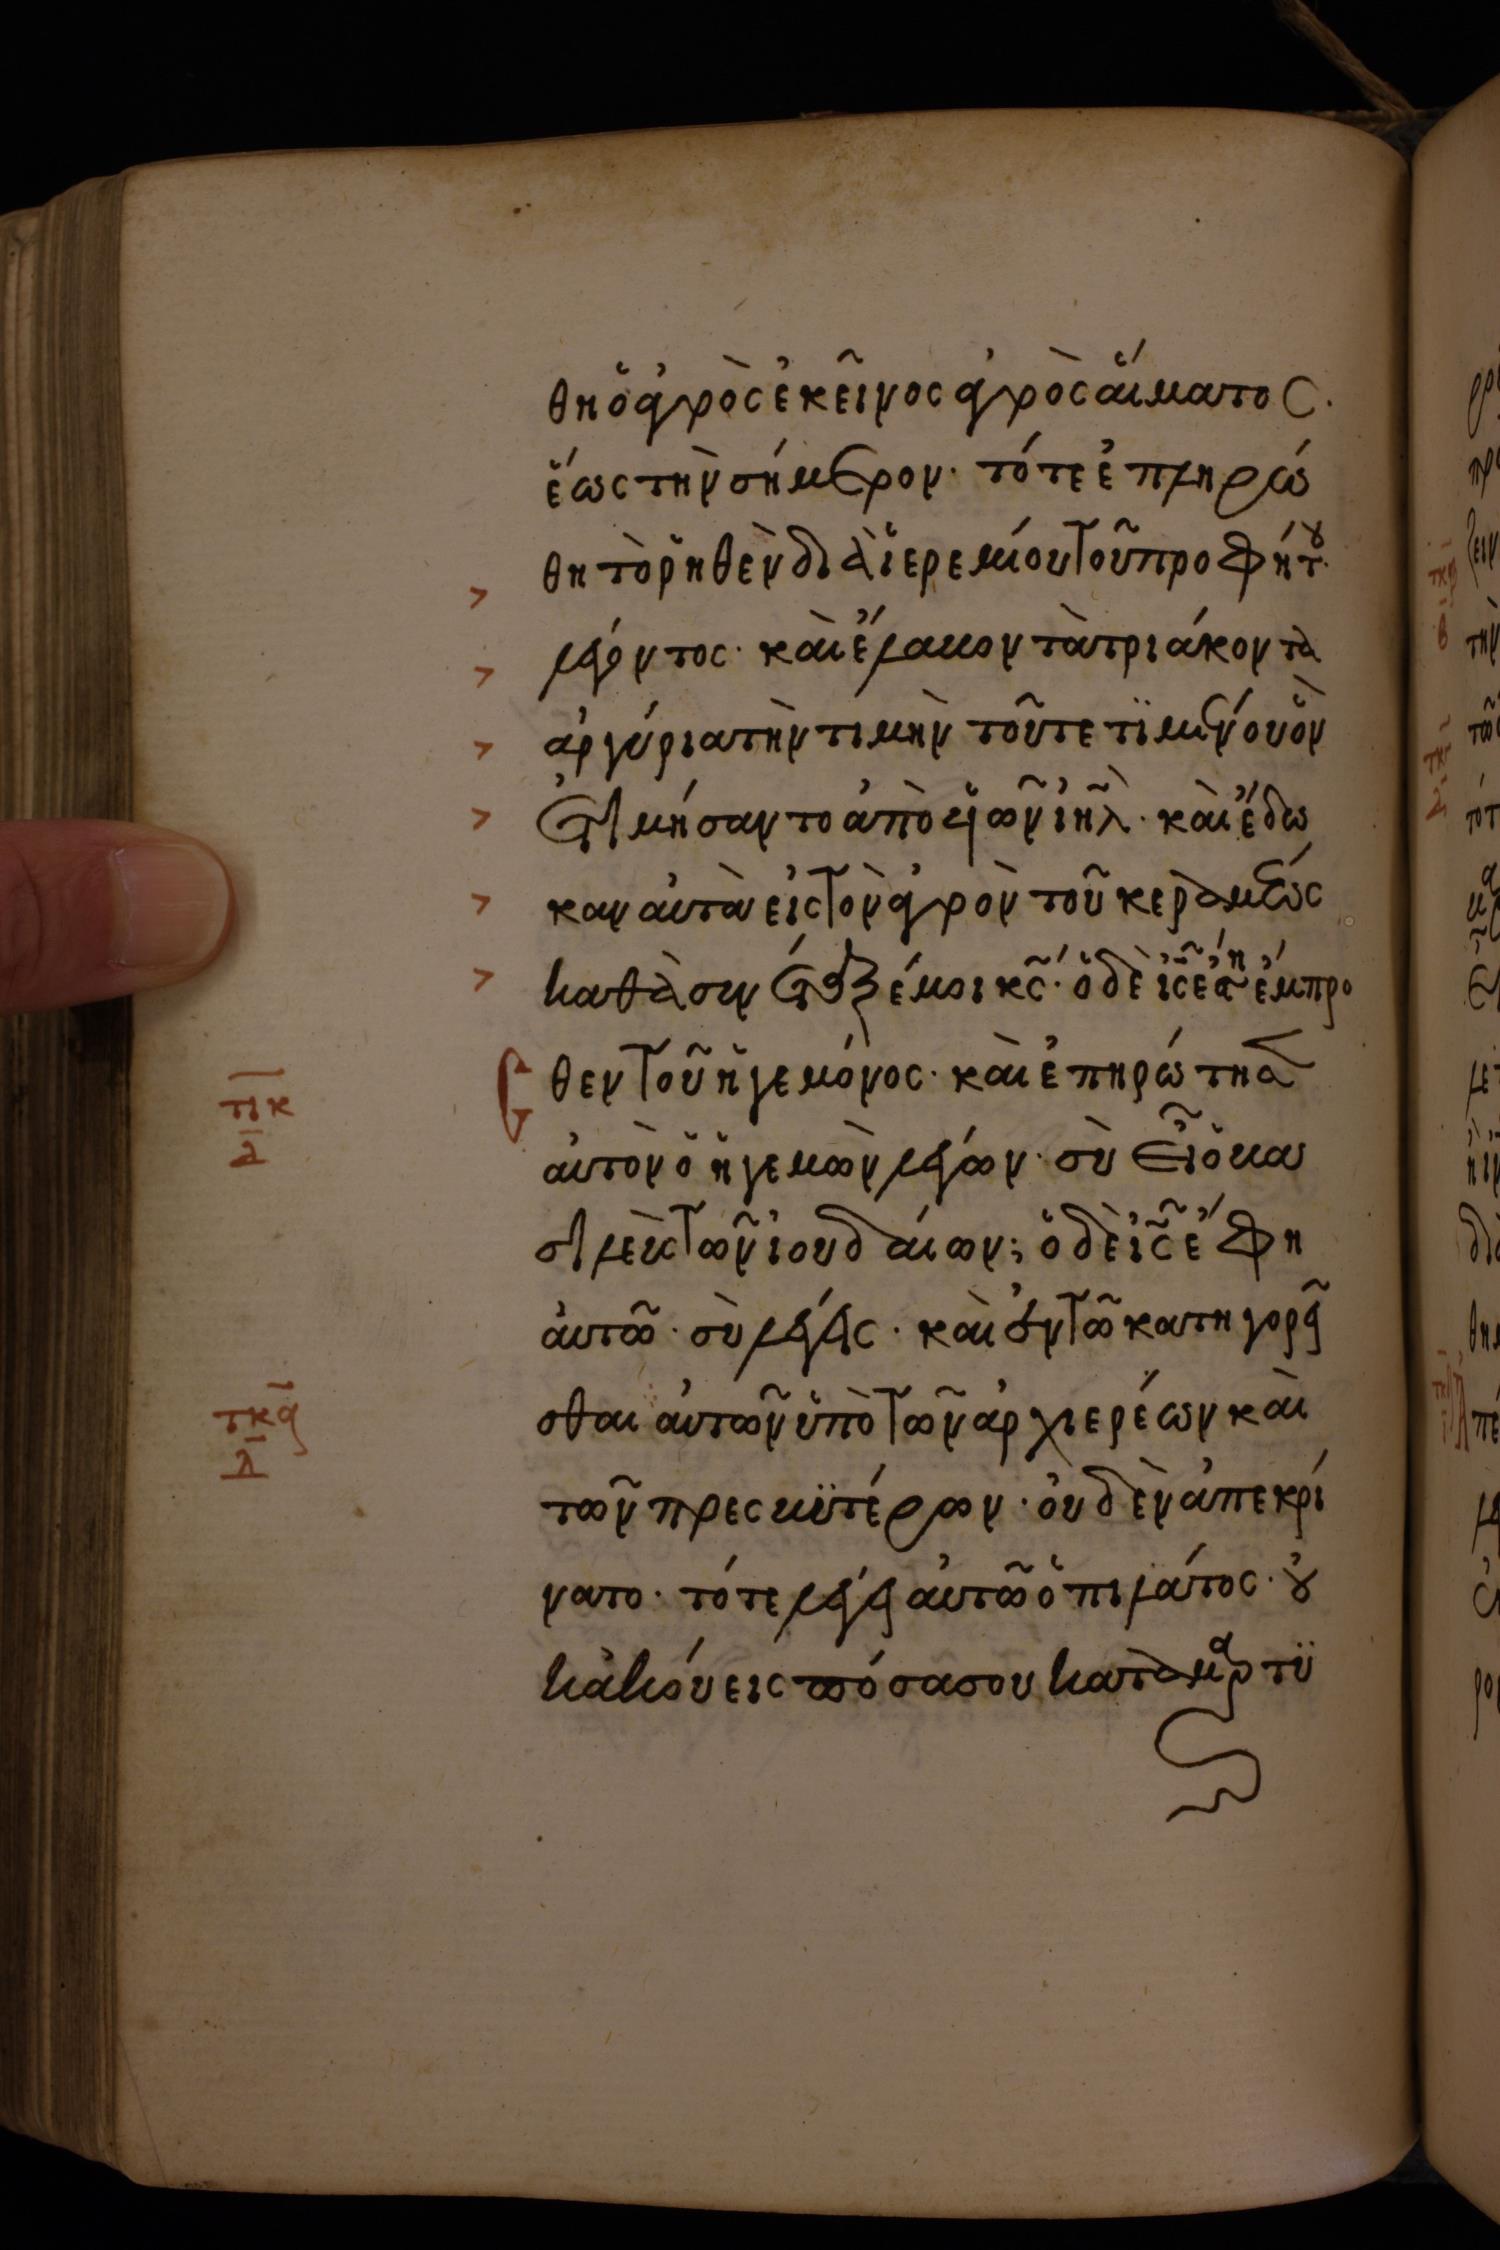 θη ὁ ἀγρὸς ἐκεῖνος ἀγρὸς αἵματος.
ἕως τὴν σήμερον· τότε ἐπληρώ
θη τὸ ῥηθὲν διὰ ἱερεμίου τοῦ προφήτου
λέγοντος· καὶ ἔλαβον τὰ τριάκοντα
ἀργύρια τὴν τιμὴν τοῦ τετϊμημένου ὃν
ἐτιμήσαντο ἀπὸ υἱῶν ιῆλ· καὶ ἔδω
καν αὐτὰ εἰς τὸν ἀγρὸν τοῦ κεραμέως
καθὰ συνέταξέ μοι κς· ὁ δὲ ις ἔστη ἔμπρο
θεν τοῦ ἡγεμόνος· καὶ ἐπηρώτησεν
πκ
τκ
α
αὐτὸν ὁ ἡγεμὼν λέγων· σὺ εἶ ὁ βα
σιλεὺς τῶν ἰουδαίων; ὁ δὲ ις ἔφη
αὐτῶ· σὺ λέγεις· καὶ ἐν τῶ κατηγορεῖ
σθαι αὐτῶν ὑπὸ τῶν ἀρχιερέων καὶ
τκα
δ
τῶν πρεσβϋτέρων· οὐδὲν ἀπεκρί
νατο· τότε λέγει αὐτῶ ὁ πιλάτος· οὐ
κ ἀκούεις πόσα σου καταμαρτϋ